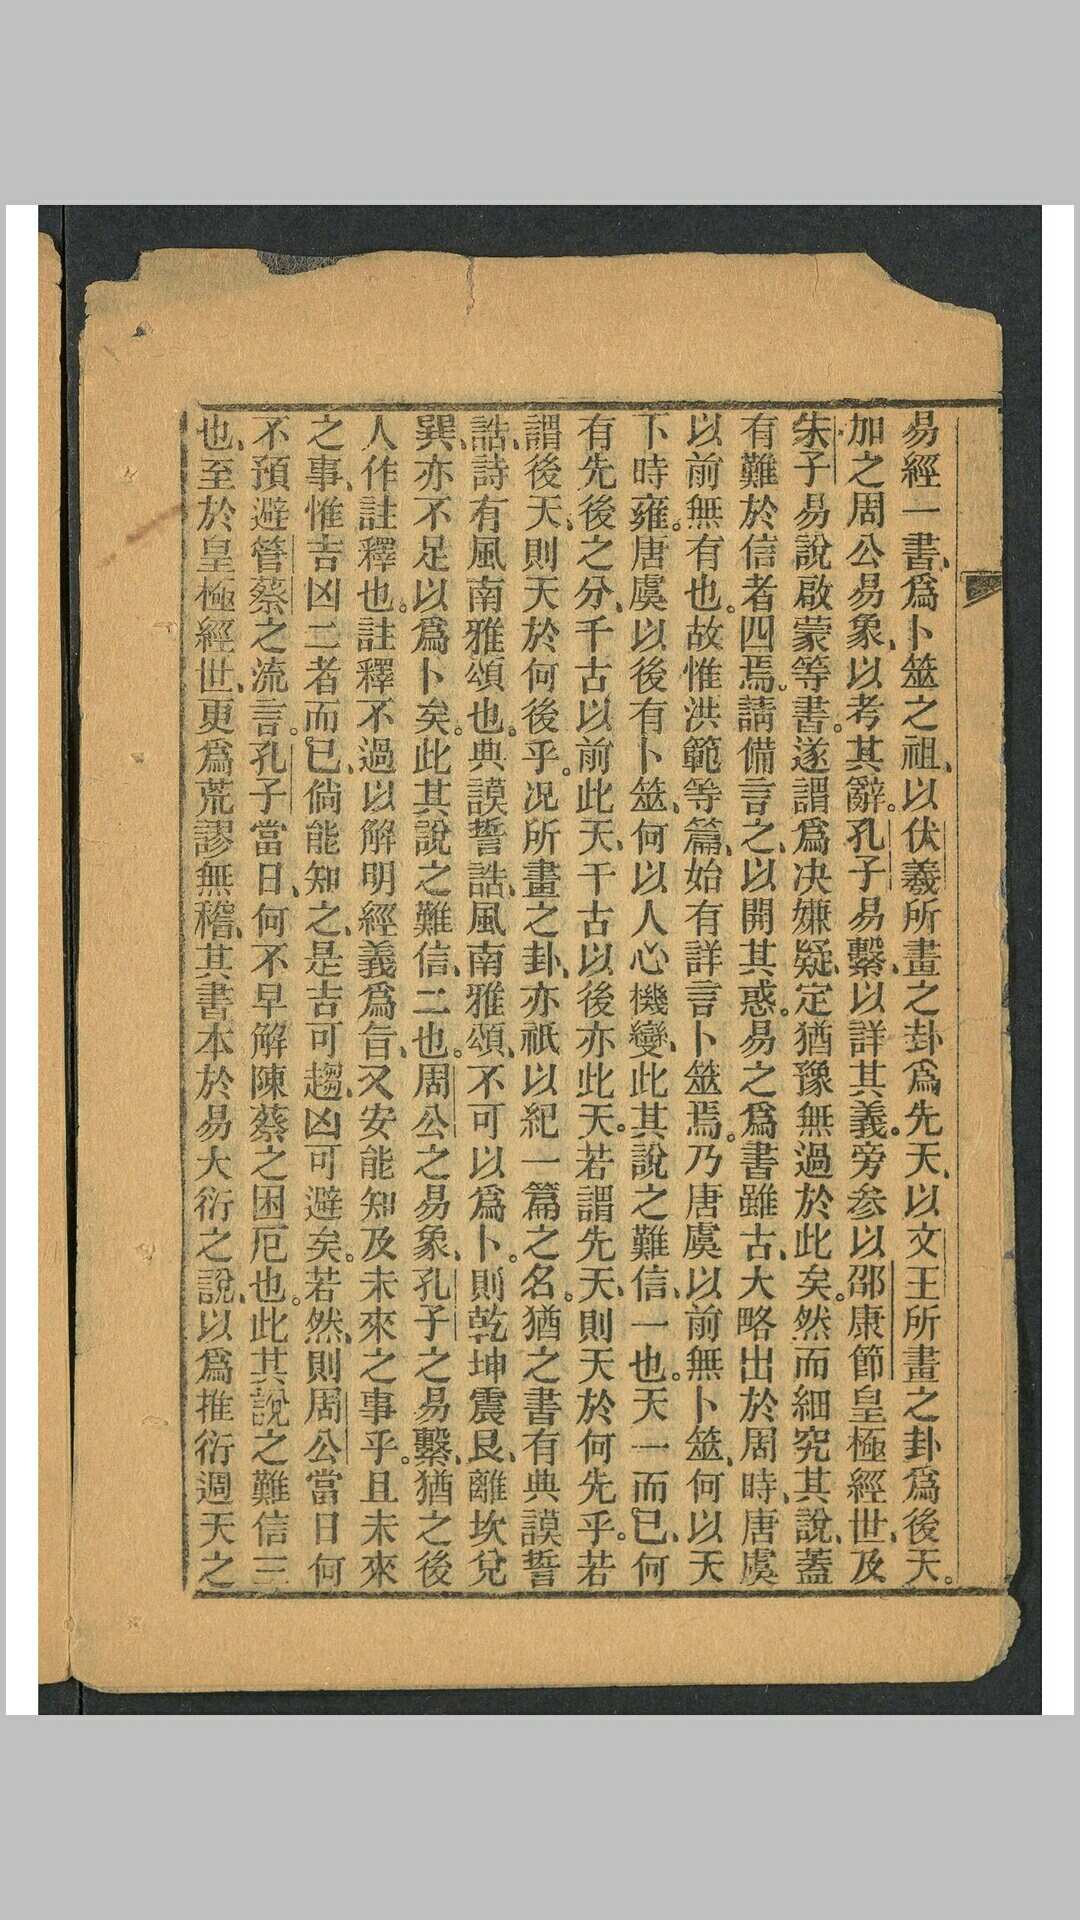 易經一書、爲卜筮之祖、以伏羲所畫之卦爲先天、以文王所畫之卦爲後天。
加之周公易象、以考其辭。孔子易繫、以詳其義。旁參以邵康節皇極經世、及
朱子易說啟蒙等書。遂謂爲決嫌疑、定猶豫無過於此矣。然而細究其說、蓋
有難於信者四焉。請備言之、以開其惑。易之爲書雖古、大略出於周時、唐虞
以前無有也。故惟洪範等篇、始有詳言卜筮焉。乃唐虞以前無卜筮、何以天
下時雍。唐虞以後有卜筮、何以人心機變、此其說之難信、一也。天一而已、何
有先後之分、千古以前此天、千古以後亦此天。若謂先天、則天於何先乎。若
謂後天、則天於何後乎。况所畫之卦、亦祇以紀一篇之名。猶之書有典謨誓
誥、詩有風南雅頌也。典謨誓誥、風南雅頌、不可以爲卜。則乾坤震艮、離坎兌
巽、亦不足以爲卜矣。此其說之難信、二也。周公之易象、孔子之易繫、猶之後
人作註釋也。註釋不過以解明經義爲旨、又安能知及未來之事乎。且未來
之事、惟吉凶二者而已、倘能知之、是吉可趨、凶可避矣。若然、則周公當日何
不預避管蔡之流言。孔子當日、何不早解陳蔡之困厄也。此其說之難信三
也、至於皇極經世、更爲荒謬無稽、其書本於易大衍之說、以爲推衍週天之